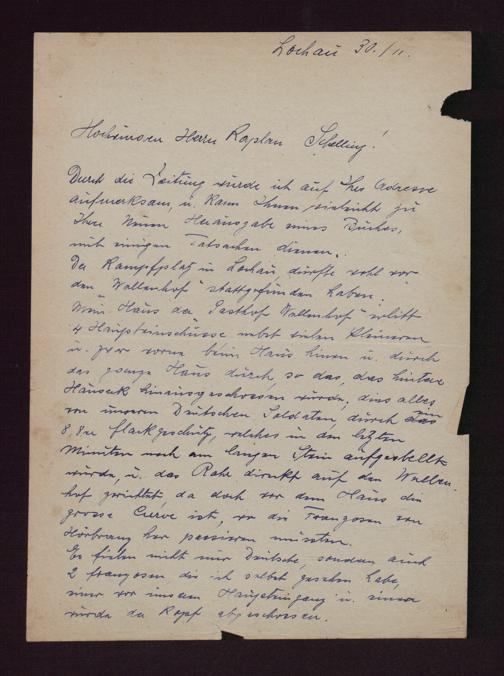 Lochau 30./11.
Hochwürden Herrn Kaplan Schelling!
Durch die Zeitung wurde ich auf Ihre Adresse
aufmerksam, u. kann Ihnen vielleicht zu
Ihrer Neuen Herausgabe eines Buches,
mit einigen Tatsachen dienen.
Der Kampfplatz in Lochau, dürfte wohl vor
den "Wellenhof" stattgefunden haben;
Mein Haus der "Gasthof Wellenhof" erlitt
4 Haupteinschüsse nebst vielen kleineren
u. zwar vorne beim Haus hinein u. durch
das ganze Haus durch, so das, das hintere
Hauseck hinausgeschossen wurde; dies alles
von unseren Deutschen Soldaten, durch ein
8,8er Flackgeschütz, welches in den letzten
Minuten noch am langen Stein aufgestellt
wurde, u. das Rohr direkt auf den Wellen-
hof gerichtet, da doch vor dem Haus die
grosse Curve ist, wo die Franzosen von
Hörbranz her passieren müssten.
Es fielen nicht nur Deutsche, sondern auch
2 Franzosen die ich selbst gesehen habe,
einer vor unserem Hauseingang u. einer
wurde der Kopf abgeschossen.